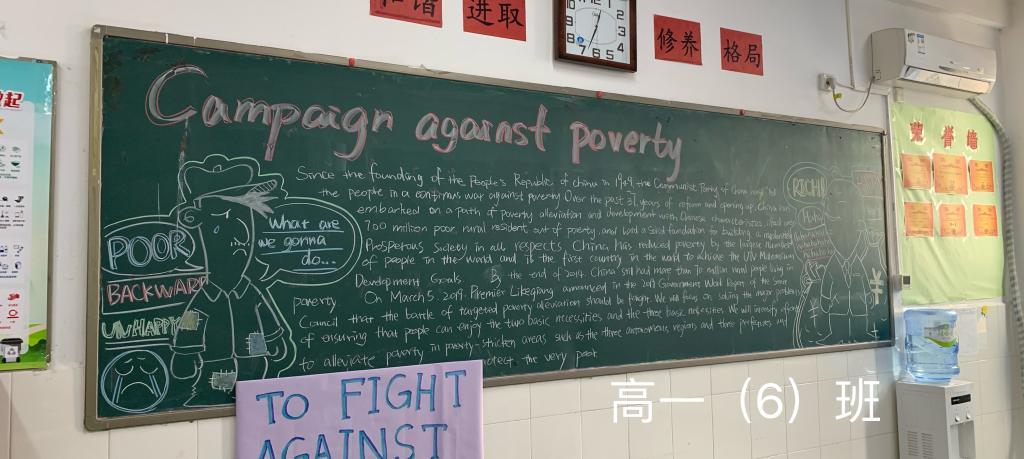 和谐
进取
修养
格局
荣誉墙
Campaign against poverty
Since the founding of the People's Republic of China in 1949, the Communist Party of China
the people in a continuous war against poverty. Over the past years of reform and opening up, China
embarked on a path of poverty alleviation and development with Chinese characteristics,
700 million poor rural resident out of poverty, and laid a solid foundation for building a
Prosperous Society in all respects. China has reduced poverty by the largest number
of people in the world and is the first country in the world to achieve the UN Millennium
Development Goals. By the end of 2014, China still had more than 70 million rural people living in
poverty
On March 5, 2019 Premier Likeqiang announced in the 2019 Government Work Report of the State
Council that the battle of targeted poverty alleviation should be fought. We will focus on solving the major problems
of ensuring that people can enjoy the two basic necessities and the three basic necessities. We will
to alleviate poverty in poverty-stricken areas such as the three autonomous regions and three prefectures, and
the very poor
what are
we gonna
do...
POOR
BACKWARD
UNHAPPY
RICH!
¥
TO FIGHT
AGAINST
高一（6）班